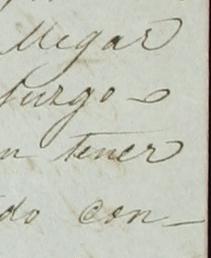 llegar
surgo
n tener
do con-